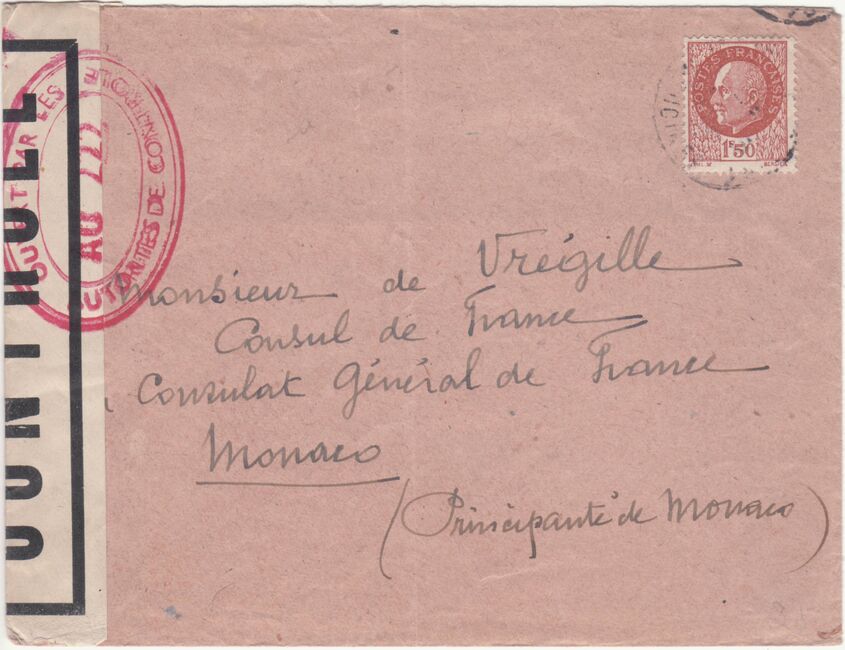 CONTROLE
OUVERT PAR LES AUTORITÉS DE CONTROLE
AU 222
POSTES FRANÇAISES
1F50
Monsieur de Vrégille
Consul de France
Consulat Général de France
Monaco
(Principauté de Monaco)